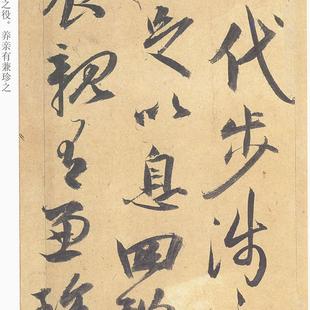 代步涉
足以息四
親有兼珍
之役。养亲有兼珍之